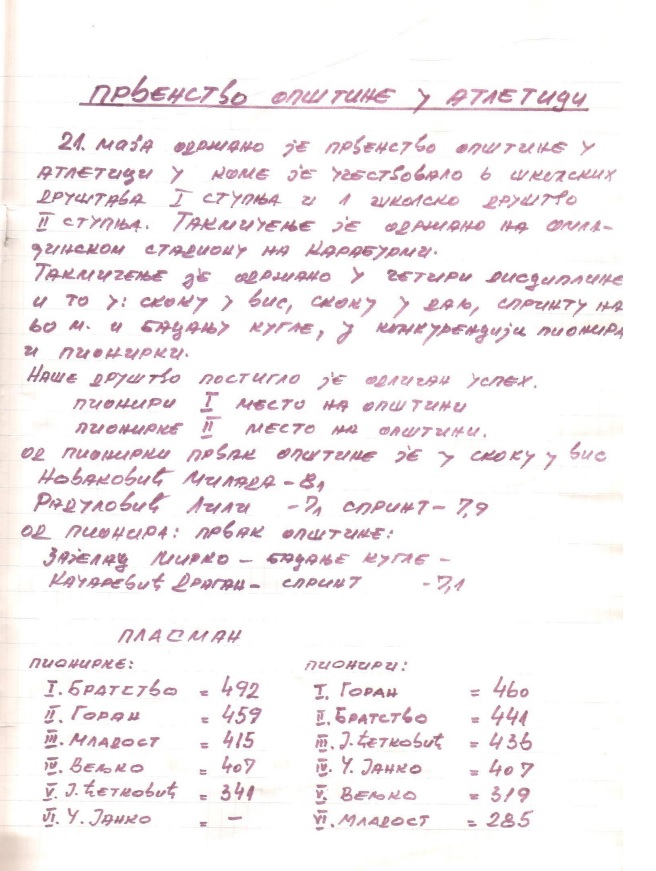 ПРВЕНСТВО ОПШТИНЕ У АТЛЕТИЦИ
21. МАЈА ОДРЖАНО ЈЕ ПРВЕНСТВО ОПШТИНЕ У
АТЛЕТИЦИ У КОМЕ ЈЕ УЧЕСТВОВАЛО 6 ШКОЛСКИХ
ДРУШТАВА I СТУПЊА И 1 ШКОЛСКО ДРУШТВО
II СТУПЊА. ТАКМИЧЕЊЕ ЈЕ ОДРЖАНО НА ОМЛА-
ДИНСКОМ СТАДИОНУ НА КАРАБУРМИ.
ТАКМИЧЕЊЕ ЈЕ ОДРЖАНО У ЧЕТИРИ ДИСЦИПЛИНЕ
И ТО У: СКОКУ У ВИС, СКОКУ У ДАЉ, СПРИНТУ НА
60 М. И БАЦАЊУ КУГЛЕ, У КОНКУРЕНЦИЈИ ПИОНИРА
И ПИОНИРКИ.
НАШЕ ДРУШТВО ПОСТИГЛО ЈЕ ОДЛИЧАН УСПЕХ.
ПИОНИРИ I МЕСТО НА ОПШТИНИ
ПИОНИРКЕ II МЕСТО НА ОПШТИНИ.
ОД ПИОНИРКИ ПРВАК ОПШТИНЕ ЈЕ У СКОКУ У ВИС
НОВАКОВИЋ МИЛАДА - 8,
РАДУЛОВИЋ ЛИЛИ - 7, СПРИНТ - 7,9
ОД ПИОНИРА: ПРВАК ОПШТИНЕ:
ЗАЈЕЛАЦ МИРКО - БАЦАЊЕ КУГЛЕ -
КАЧАРЕВИЋ ДРАГАН - СПРИНТ - 7,1
ПЛАСМАН
ПИОНИРКЕ:
I. БРАТСТВО = 492
II. ГОРАН = 459
III. МЛАДОСТ = 415
IV. ВЕЉКО = 407
V. Ј. ЋЕТКОВИЋ = 341
VI. Ч. ЈАНКО = -
ПИОНИРИ:
I. ГОРАН = 460
II. БРАТСТВО = 441
III. Ј. ЋЕТКОВИЋ = 436
IV. Ч. ЈАНКО = 407
V. ВЕЉКО = 319
VI. МЛАДОСТ = 285